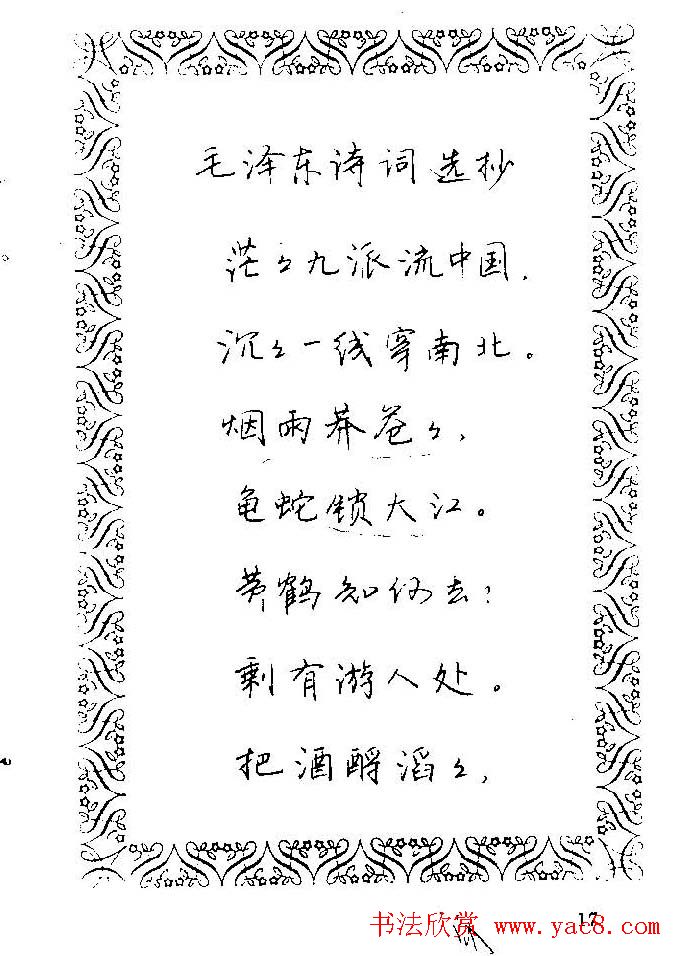 毛泽东诗词选抄
茫々九派流中国，
沉々一线穿南北。
烟雨莽苍々，
龟蛇锁大江。
黄鹤知何去？
剩有游人处。
把酒酹滔々，
17
书法欣赏 www.yac8.com